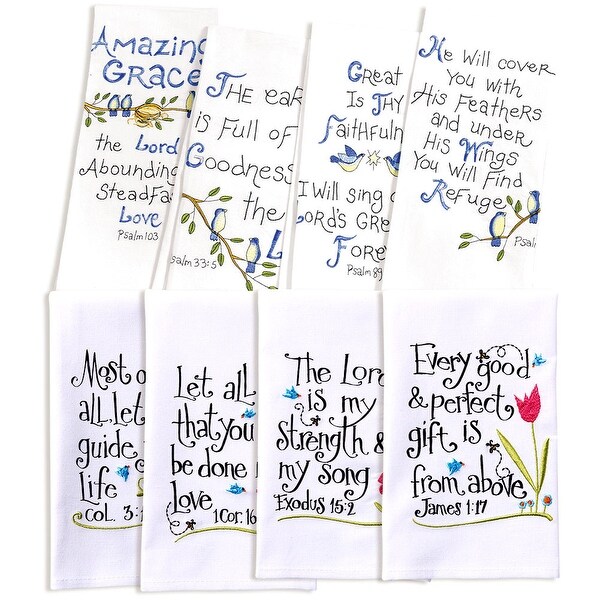 Amazing
Grace
the Lord
Abounding
Steadfas
Love
Psalm 103
The ear
is Full of
Goodness
the L
Psalm 33:5
Great
Is Thy
Faithfuln
I Will sing o
Lord's Gre
Fore
Psalm 89
He Will cover
You with
His Feathers
and under
His Wings
You Will Find
Refuge
Psalm
Most o
all, let
guide
Life
Col. 3:1
Let all
that you
be done
Love
1 Cor. 16
The Lord
is my
Strength &
my song
Exodus 15:2
Every good
& perfect
gift is
from above
James 1:17